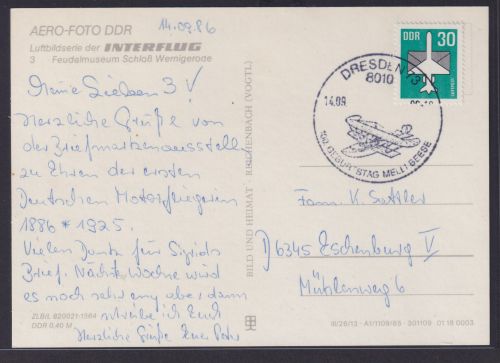 AERO-FOTO DDR
Luftbildserie der INTERFLUG
3 Feudalmuseum Schloß Wernigerode
14.09.86
Meine Lieben 3!
Herzliche Grüße von
der Briefmarkenausstellg
zu Ehren der ersten
Deutschen Motorfliegerin
1886 * 1925.
Vielen Dank für Sigrids
Brief. Nächste Woche wird
es noch sehr eng aber dann
schreibe ich Euch
Herzliche Grüße Euer
ZLB/L 820021-1984
DDR 0,40 M
BILD UND HEIMAT · REICHENBACH (VOGTL)
DDR 30
DRESDEN
8010
14.09.
100. GEBURTSTAG MELLI BEESE
Fam. K. Sattler
D 6345 Eschenburg V
Mühlenweg 6
III/26/13 · A1/1109/85 · 301109 01 18 0003